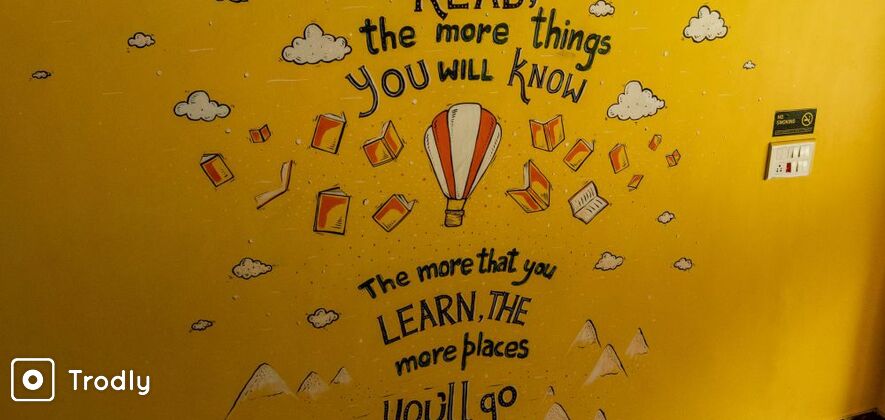 READ,
the more things
YOU WILL KNOW
NO
SMOKING
The more that you
LEARN, THE
more places
you'll go
Trodly